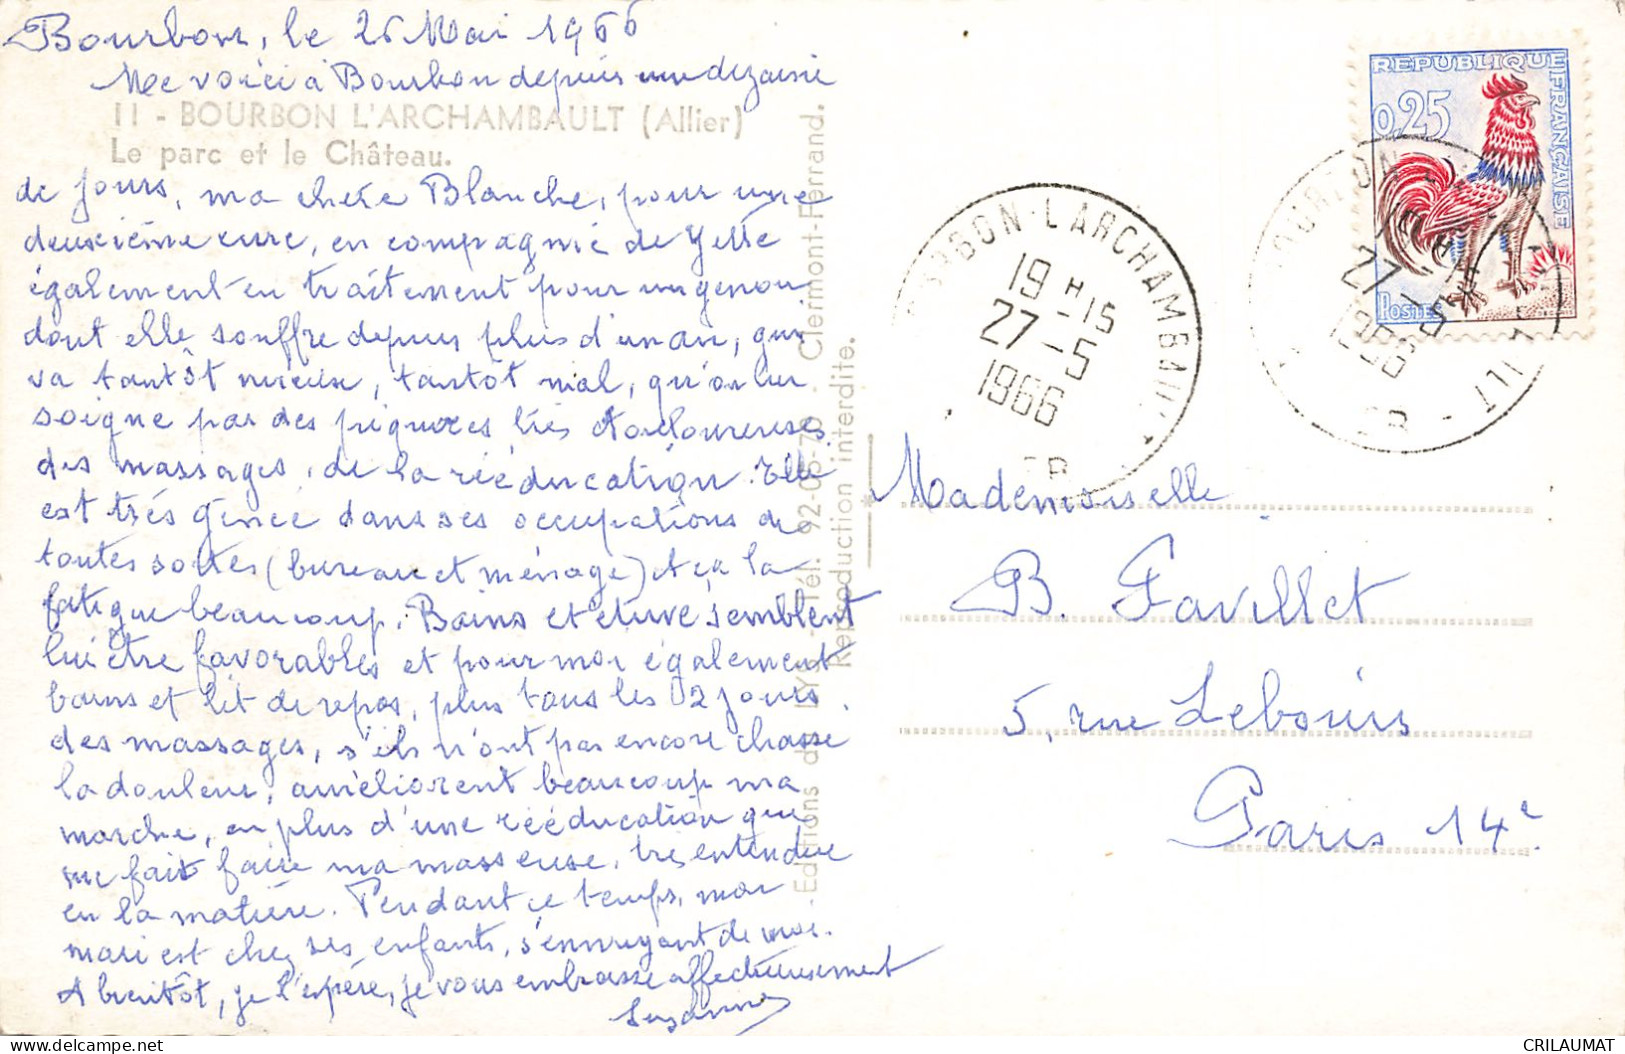 Bourbon, le 26 Mai 1966
Me voici à Bourbon depuis une dizaine
11 - BOURBON L'ARCHAMBAULT (Allier)
Le parc et le Château.
de jours, ma chère Blanche, pour une
deuxième cure, en compagnie de
également en traitement pour un genou
dont elle souffre depuis plus d'un an, qui
va tantôt mieux, tantôt mal, qu'on lui
soigne par des piqûres très douloureuses
des massages, de la rééducation. Elle
est très gênée dans ses occupations de
toutes sortes (bureau et ménage) et ça la
fatigue beaucoup. Bains et étuve semblent
lui être favorables et pour moi également
bains et lit de repos, plus tous les 2 jours
des massages, s'ils n'ont pas encore chassé
la douleur, améliorent beaucoup ma
marche, en plus d'une rééducation que
me fait faire ma masseuse, très entendue
en la matière. Pendant ce temps, mon
mari est chez ses enfants, s'ennuyant de moi.
A bientôt, je l'espère, je vous embrasse affectueusement
Suzanne
Editions d' - Tél. 92-05-79 - Clermont-Ferrand.
Reproduction interdite.
REPUBLIQUE FRANÇAISE
0,25
POSTES
BOURBON-L'ARCHAMBAULT
19 H 15
27 - 5
1966
27 - 5
1966
Mademoiselle
B. Favillet
5, rue Lebouis
Paris 14e
CRILAUMAT